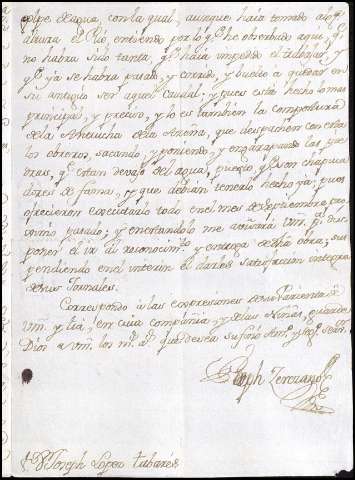 golpe de agua, con la qual, aunque haia tomado algª
altura el Rio, entiendo por lo qe. he obserbado aqui, qe.
no habra sido tanta, qe. haia impedido el trabajar, y
qe. ya se habra pasado, y corrido, y buelto a quedar en
su antiguo ser aquel caudal: y pues está hecho lo mas
principal, y preciso, y lo es tambien la compostura
de la Antorcha de la Anzena, que despachen con ella
los obreros, sacando, y poniendo, y engrapando las pie
dras, qe. estan devajo del agua, puesto qe. son chapuza
dores de fama, y que debian tenerlo hecho ya: pues
ofrecieron executarlo todo en el mes de Septiembre pro
ximo pasado; y en estandolo me avisará Vm. pª. dis
poner el ir al reconocimto. y entrega de dha obra; sus
pendiendo en el interim el darles satisfacion integra
de sus Jornales.
Correspondo a las expresiones de su Parienta de
Vm. y tia, en cuia compañia, y de las Niñas, guarde
Dios a Vm. los ms. as. que desea su fino Amº. y segº. servr.
Joseph Terozano
Dn. Joseph Lopez Tabarés